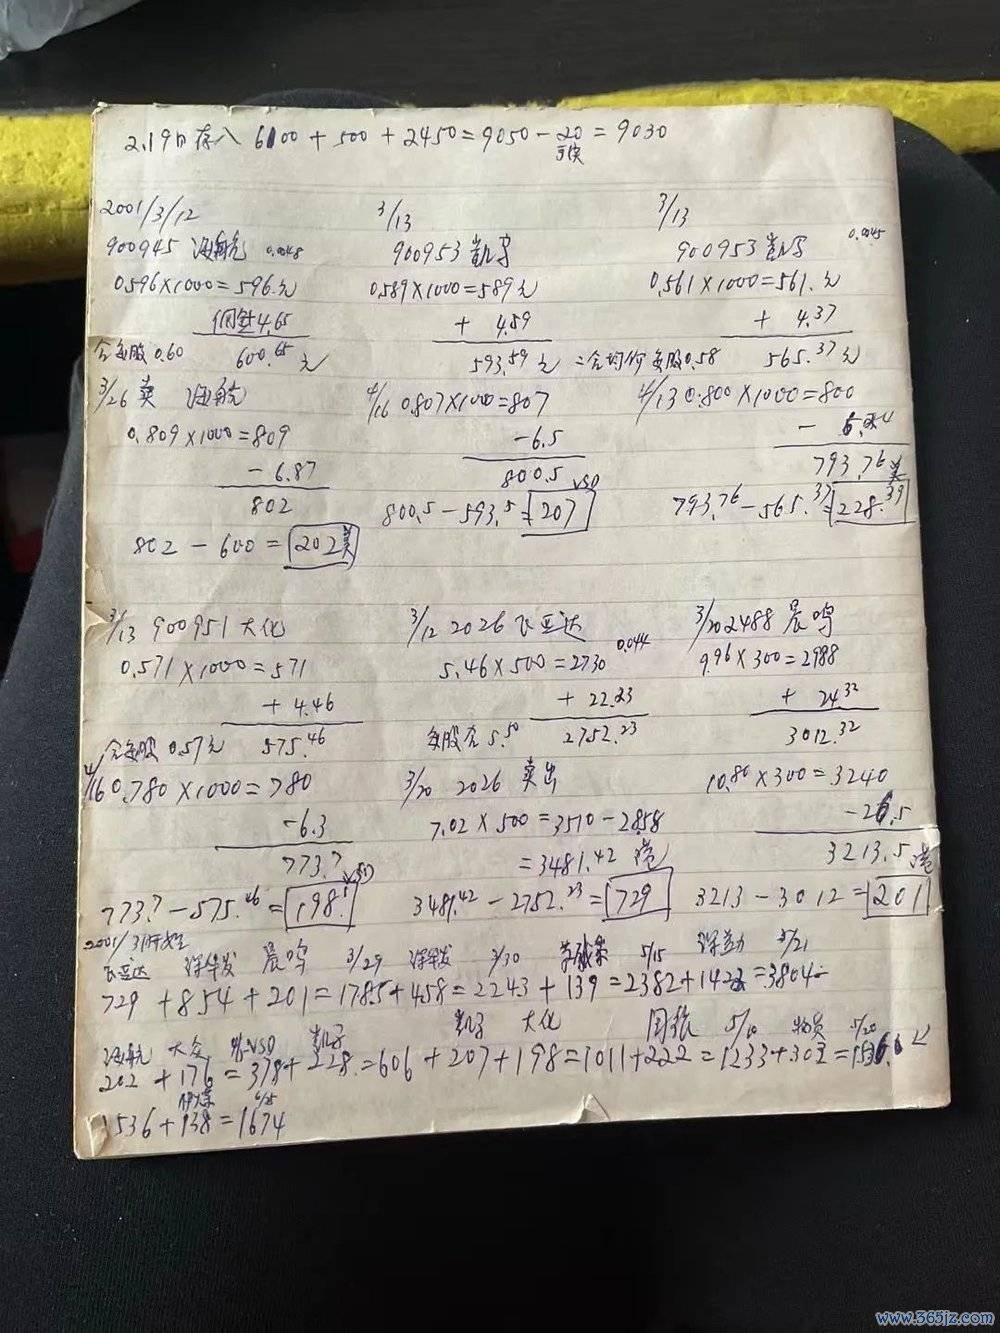 2.19日存入 6100 + 500 + 2450 = 9050 - 20 = 9030
手续
2001/3/12 3/13 3/13
900945 海航 0.0048 900953 凯马 900953 凯马 0.0045
0.596×1000=596.元 0.589×1000=589元 0.561×1000=561.元
佣金4.65 + 4.59 + 4.37
合每股0.60 600.65元 593.59元 二合均价每股0.58 565.37元
3/26 卖 海航 4/16 0.807×1000=807 4/13 0.800×1000=800
0.809×1000=809 -6.5
- 6.87 800.5 793.76美
802 800.5-593.5=207 USD 793.76-565.37=228.39
802 - 600 = 202美
3/13 900951 大化 3/12 2026 飞亚达 0.044 3/20 2488 晨鸣
0.571×1000=571 5.46×500=2730 9.96×300=2988
+ 4.46 + 22.23 + 24.32
合每股 0.57元 575.46 每股合5.50 2752.23 3012.32
4/16 0.780×1000=780 3/20 2026 卖出 10.80×300=3240
-6.3 7.02×500=3510-28.58 -26.5
773.7 =3481.42 港 3213.5港
773.7-575.46=198.1 USD 3481.42-2752.23=729 3213-3012=201
2001/3月开始
飞亚达 深华发 晨鸣 3/29 深华发 3/30 5/15 5/21
729 +854+201=1785+458=2243+139=2382+1422=3804
凯马 大化 5/10 物贸 5/20
海航 大众 USD 凯马
202 +176=378+228=606+207+198=1011+222=1233+303=
6/25
1536+138=1674
www.365jz.com